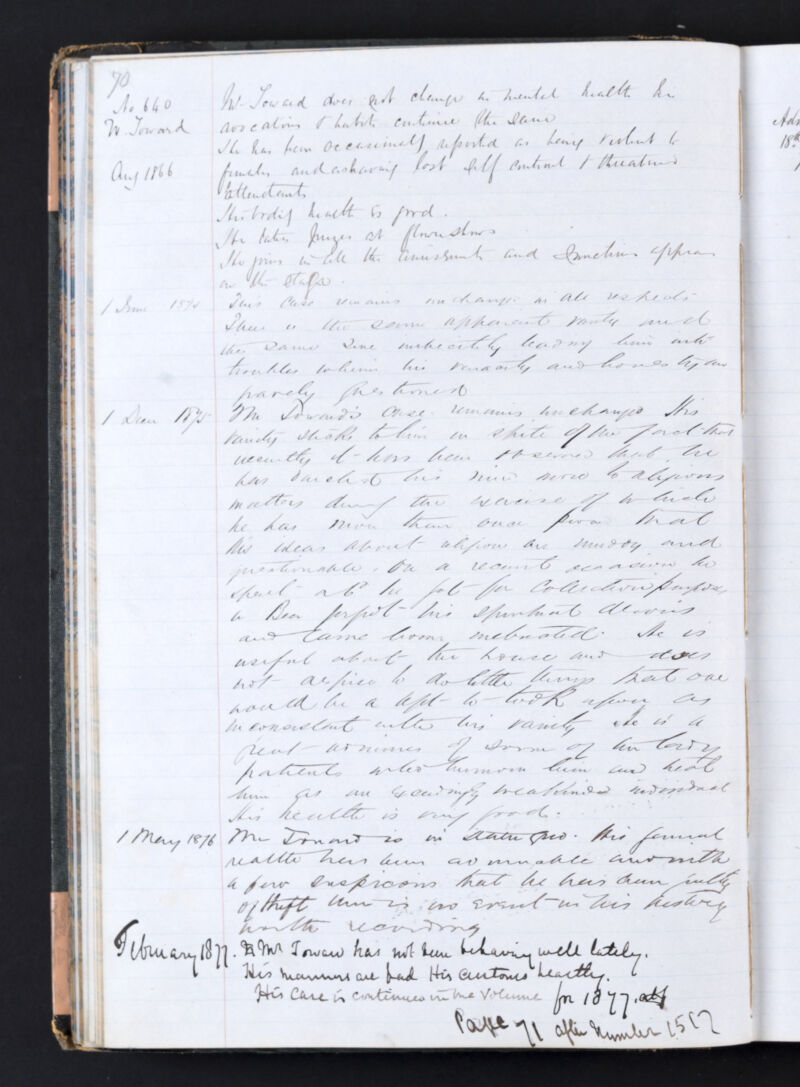 70
No 640
W. Toward
Aug 1866
Mr Toward does not change in mental health his
avocations & habits continue the same
He has been occasionally reported as being violent to
females and as having lost self control & threatened
Attendants
His bodily health is good.
He takes prizes at flower shows
He joins in all the amusements and sometimes appears
on the stage.
1 June 1875
This case remains unchanged in all respects.
There is the same apparent vanity and
the same imbecility leading him into
troubles wherein his veracity and honesty are
gravely questioned
1 Decr 1875
Mr Toward's case remains unchanged His
vanity sticks to him in spite of the fact that
recently it has been observed that he
has his mind more to religious
matters during the exercise of which
he has more than once proved that
his ideas about religion are muddy and
questionable. On a recent occasion he
spent all he got for Collection purposes
in Beer forgot his spiritual
and came home inebriated. He is
useful about the house and does
not to do little things that one
would be apt to look upon as
inconsistent with his vanity He is a
great admirer of some of the lady
patients who humour him and treat
him as an exceedingly individual
His health is very good.
1 May 1876
Mr Toward is in statu quo. His general
health has been admirable and with
a few suspicions that he has been guilty
of theft there is no event in his history
worth recording
February 1877.
Mr Toward has not been behaving well lately.
His manners are bad His
His case is continued in the Volume for 1877.
Page 71 after number 1517
Adm
18th